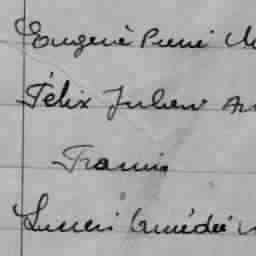 Eugène Pierre
Félix Julien
Francis
Lucien Amédée